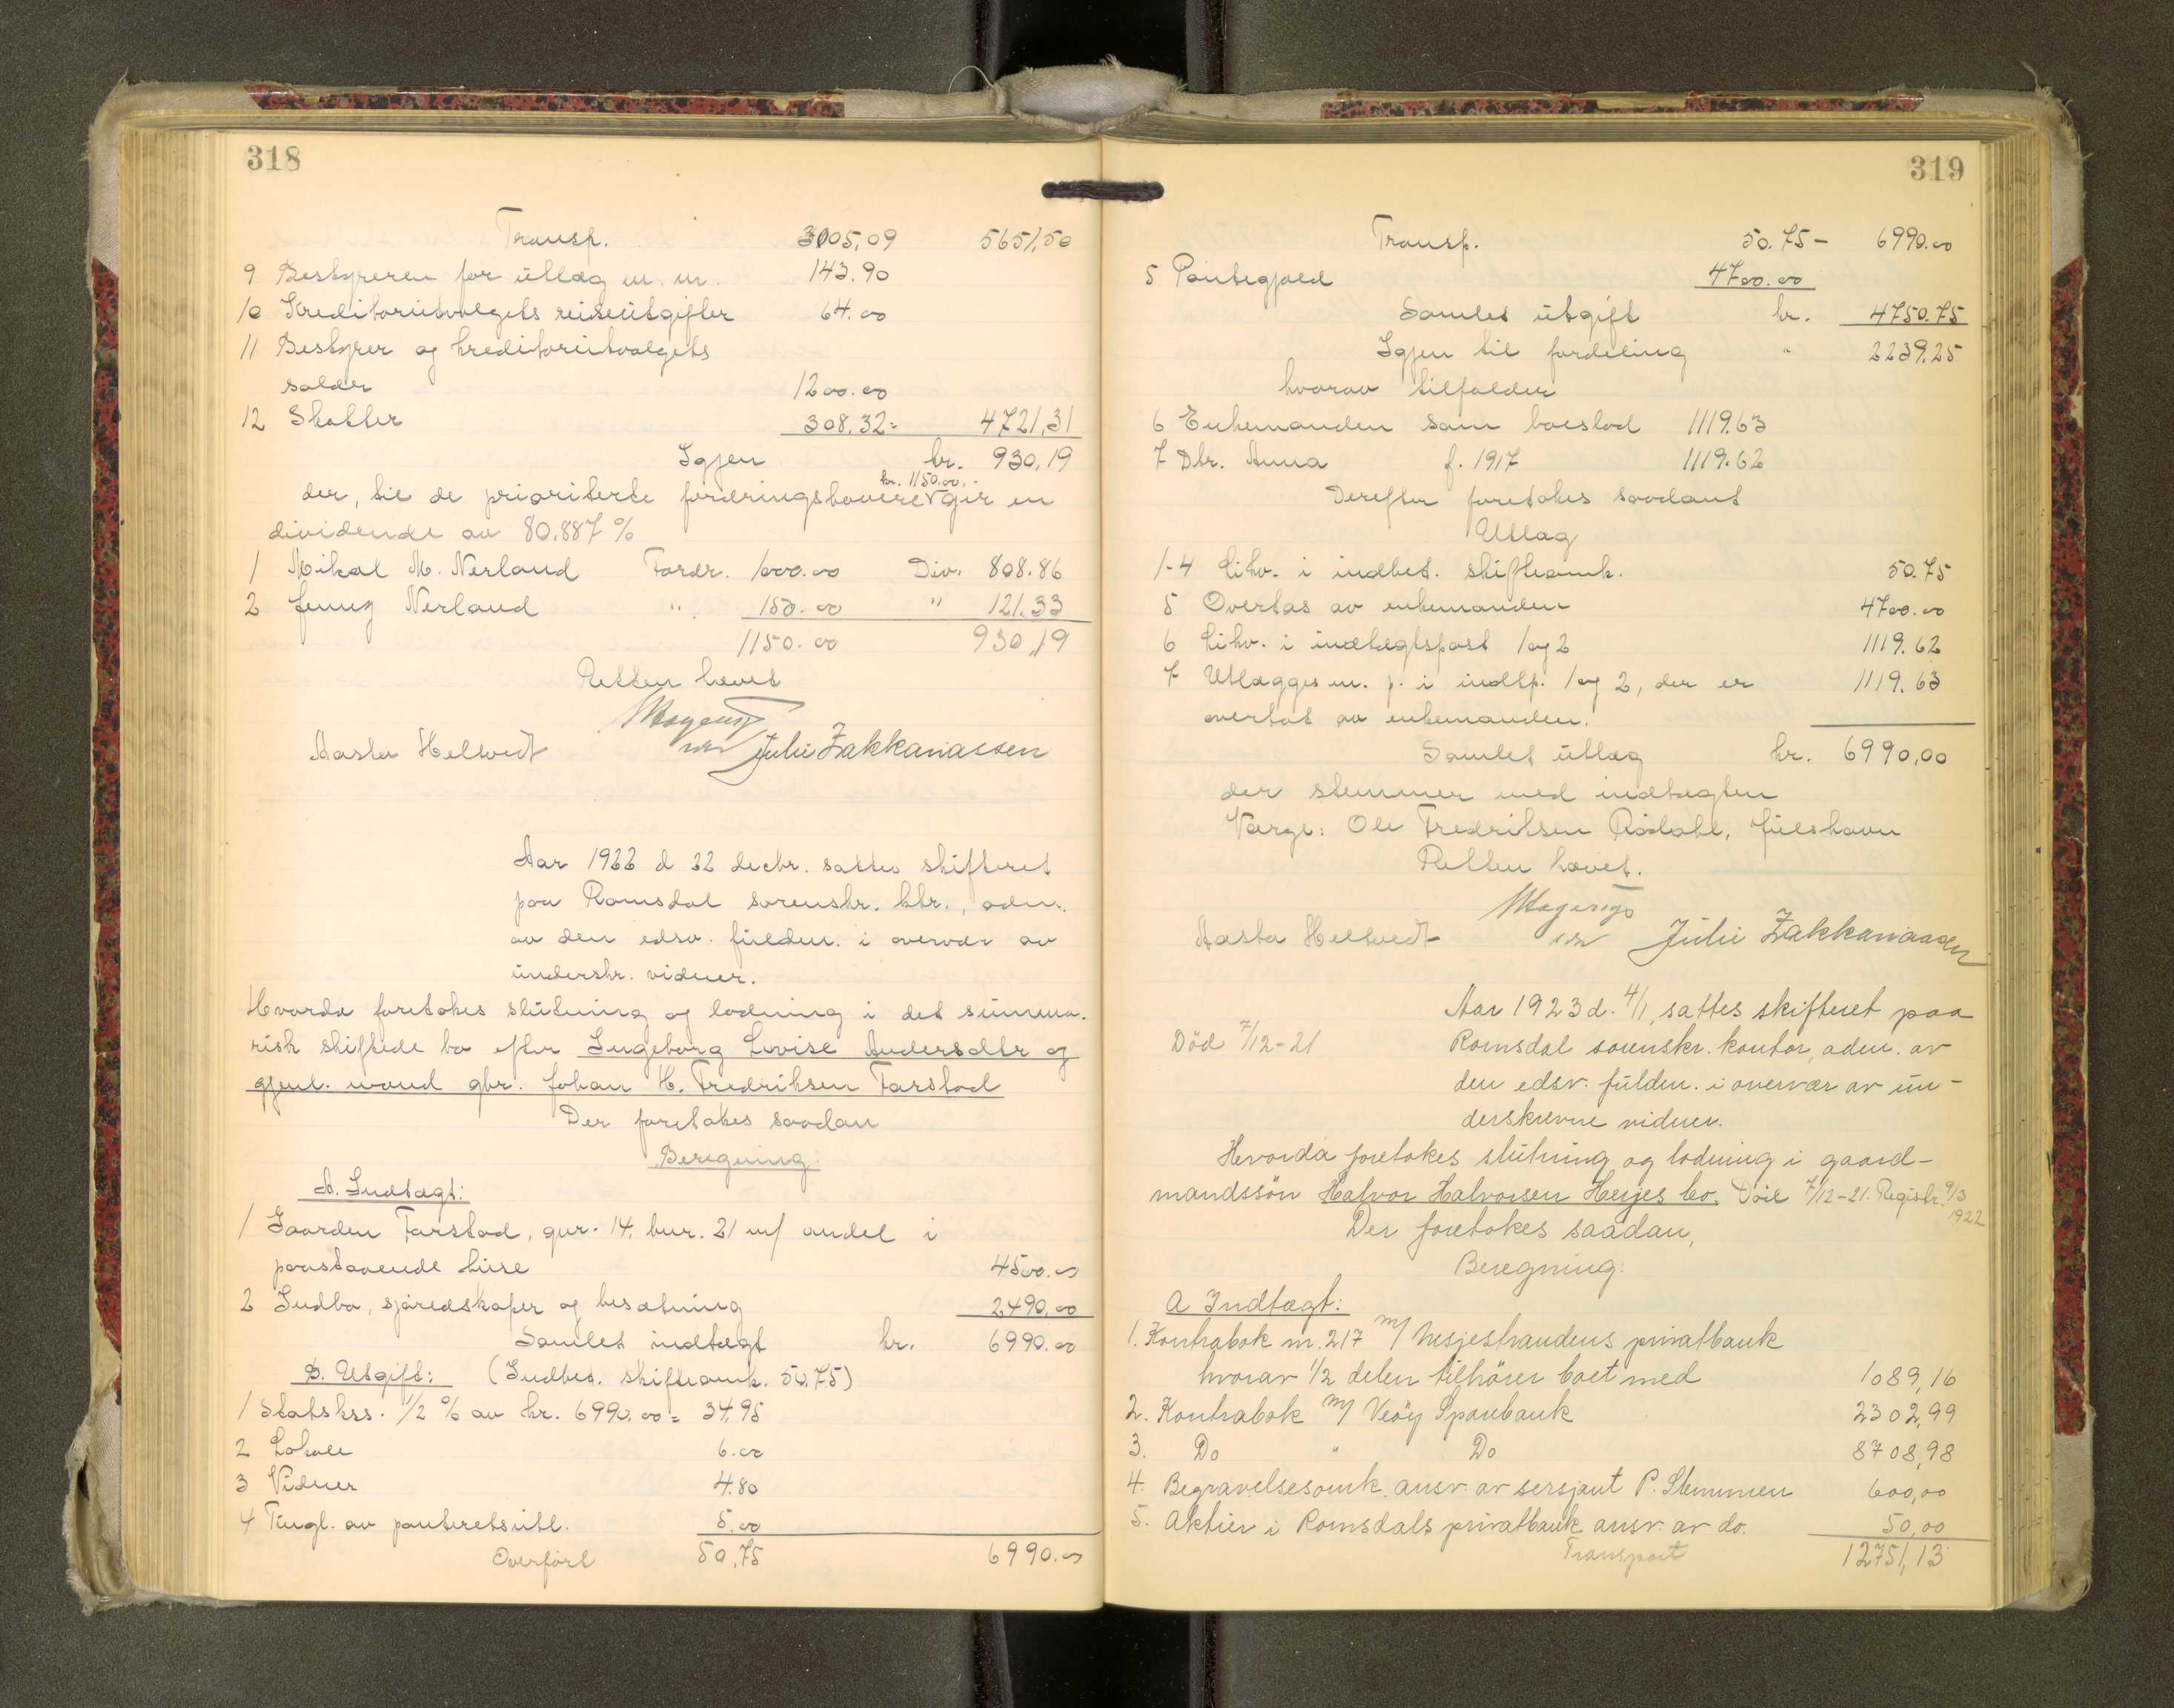 318
Transp. 3005,09 5651,50
9 Bestyreren for utlæg m. m. 143.90
10 Kreditorutvalgets reiseutgifter 64.00
11 Bestyrer og kreditorutvalgets
salær 1200.00
12 Skatter 308.32= 4721,31
Igjen kr. 930,19
kr. 1150.00
der, til de prioriterte fordringshavere gir en
dividende av 80.887 %
1 Mikal M. Nerland Fordr. 1000.00 Div. 808.86
2 Jenny Nerland " 150.00 " 121.33
1150.00 930,19
Retten hævet
Aasta Heltvedt Julie Zakkariassen
Aar 1922 d 22 decbr. sattes skifteret
paa Romsdal sorenskr. ktr., adm.
av den edsv. fuldm. i overvær av
underskr. vidner.
Hvorda foretokes slutning og lodning i det summa-
risk skiftede bo efter Ingeborg Lovise Andersdtr og
gjenl. mand gbr. Johan H. Fredriksen Farstad
Der foretokes saadan
Beregning:
A. Indtægt:
1 Gaarden Farstad, gnr. 14, bnr. 21 m/ andel i
paastaaende huse 4500.00
2 Indbo, sjøredskaper og besætning 2490.00
Samlet indtægt kr. 6990.00
B. Utgift: (Indbet. skifteomk. 50.75)
1 Statskss. 1/2 % av kr. 6990.00 = 34.95
2 Lokale 6.00
3 Vidner 4.80
4 Tingl. av panteretsutl. 5.00
Overført 50.75 6990.00
319
Transp. 50.75- 6990.00
5 Pantegjæld 4700.00
Samlet utgift kr. 4750.75
Igjen til fordeling " 2239.25
hvorav tilfalder
6 Enkemanden som boeslod 1119.63
7 Dtr. Anna f. 1917 1119.62
Derefter foretokes saadant
Utlæg
1-4 Likv. i indbet. skifteomk. 50.75
5 Overtas av enkemanden 4700.00
6 Likv. i indtægtspost 1 og 2 1119.62
7 Utlægges m. p. i indtp. 1 og 2, der er 1119.63
overtat av enkemanden.
Samlet utlæg kr. 6990,00
der stemmer med indtægten
Værge: Ole Fredriksen Rødahl, Julshavn
Retten hævet.
Aasta Heltvedt Julie Zakkariassen
Aar 1923 d. 4/1, sattes skifteret paa
Død 7/12-21 Romsdal sorenskr. kontor, adm. av
den edsv. fuldm. i overvær av un-
derskrevne vidner.
Hvorda foretokes slutning og lodning i gaard-
mandssøn Halvor Halvorsen Herjes bo. Død 7/12-21. Registr. 9/3
1922
Der foretokes saadan,
Beregning:
A Indtægt:
1. Kontrabok nr. 217 m/ Nesjestrandens privatbank
hvorav 1/2 delen tilhører boet med 1089,16
2. Kontrabok m/ Veøy Sparebank 2302,99
3. Do " Do 8708,98
4. Begravelsesomk. ansv. av sersjant P. Stemmen 600,00
5. Aktier i Romsdals privatbank ansv. av do. 50,00
Transport 12751,13